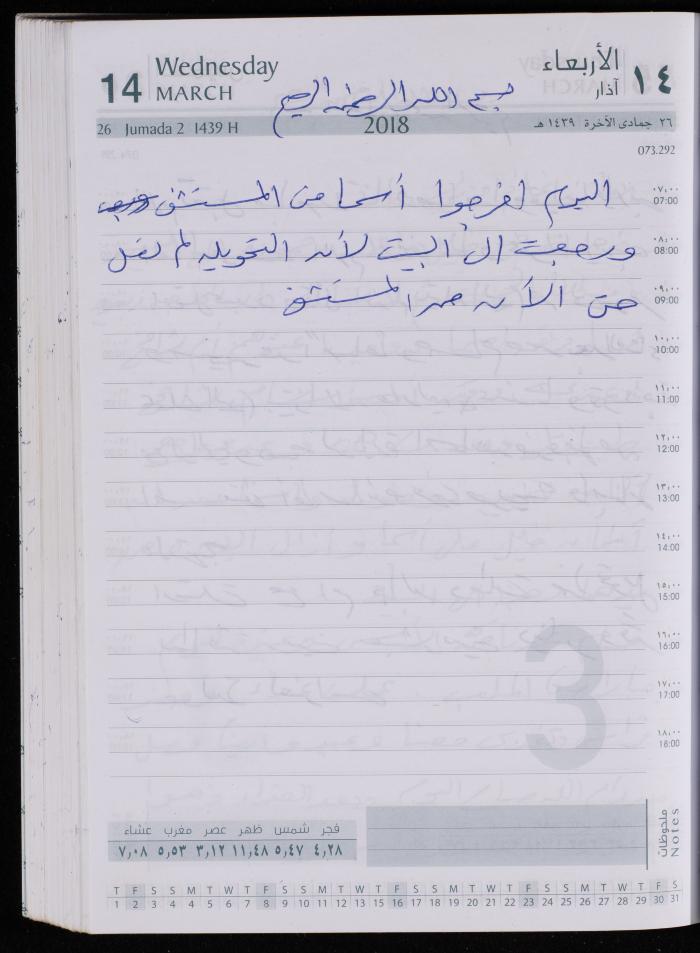 14 Wednesday MARCH الأربعاء آذار ١٤
بسم الله الرحمن الرحيم
26 Jumada 2 1439 H 2018 ٢٦ جمادى الآخرة ١٤٣٩ هـ
073.292
اليوم لفرجوا أسما من المستشفى
٠٧,٠٠ 07:00
ورجعت الى البيت لأن التحويله لم تصل
٠٨,٠٠ 08:00
حتى الآن من المستشفى
٠٩,٠٠ 09:00
١٠,٠٠ 10:00
١١,٠٠ 11:00
١٢,٠٠ 12:00
١٣,٠٠ 13:00
١٤,٠٠ 14:00
١٥,٠٠ 15:00
١٦,٠٠ 16:00
١٧,٠٠ 17:00
١٨,٠٠ 18:00
3
ملحوظات Notes
فجر شمس ظهر عصر مغرب عشاء
٤,٢٨ ٥,٤٧ ١١,٤٨ ٣,١٢ ٥,٥٣ ٧,٠٨
T F S S M T W T F S S M T W T F S S M T W T F S S M T W T F S
1 2 3 4 5 6 7 8 9 10 11 12 13 14 15 16 17 18 19 20 21 22 23 24 25 26 27 28 29 30 31